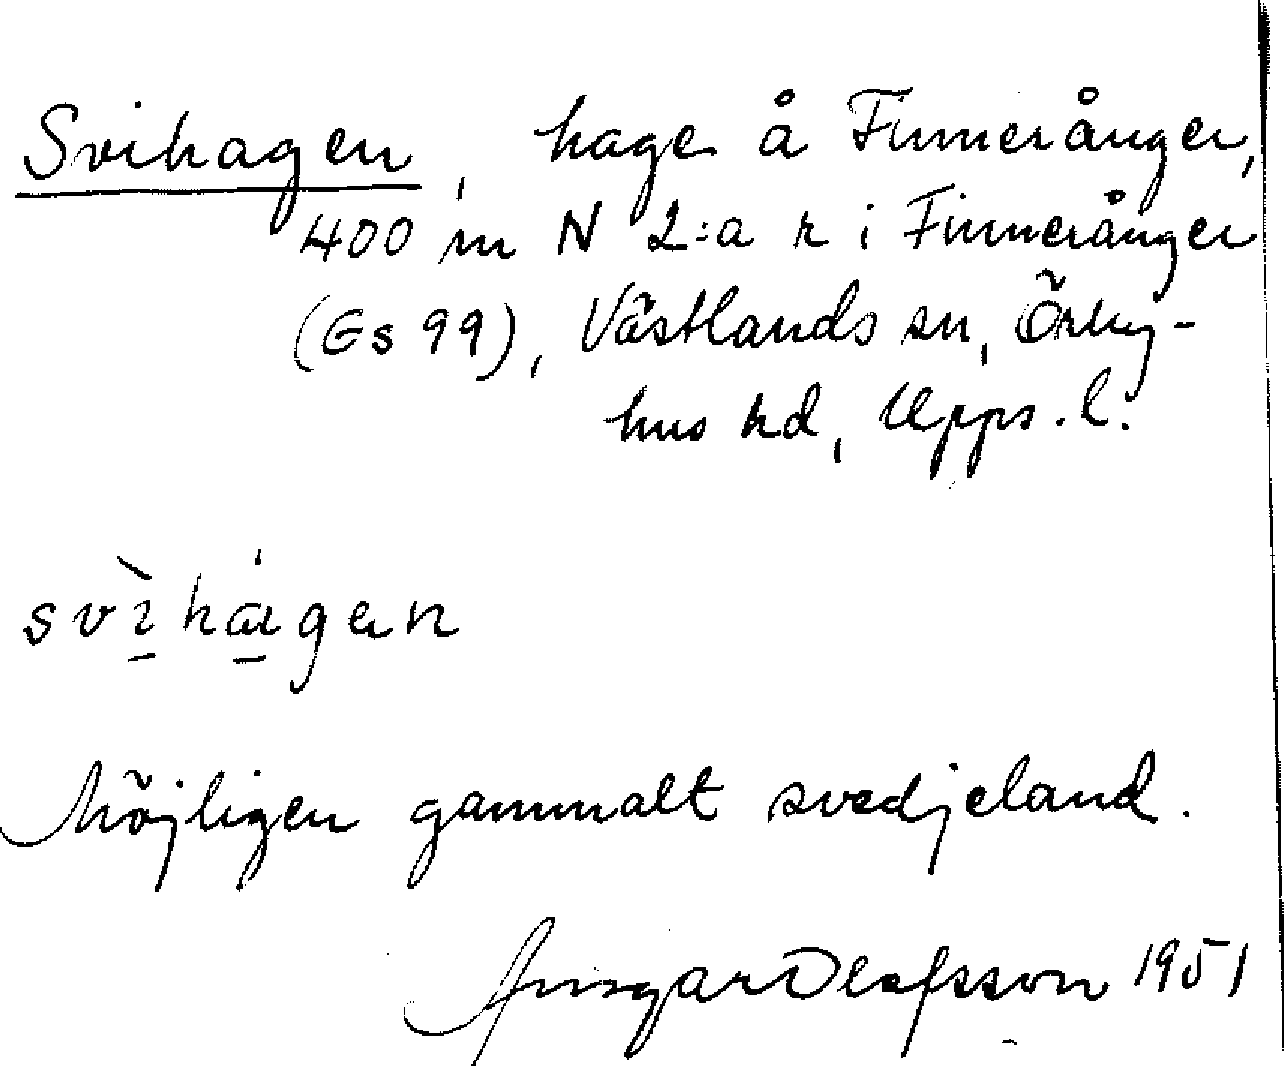 Svihagen, hage å Finneränger,
400 m N 2:a r i Finneränger
(Gs 99), Västlands sn, Örby-
hus hd, Upps. l.
svìhágan
Möjligen gammalt svedjeland.
Ansgar Olafsson 1951